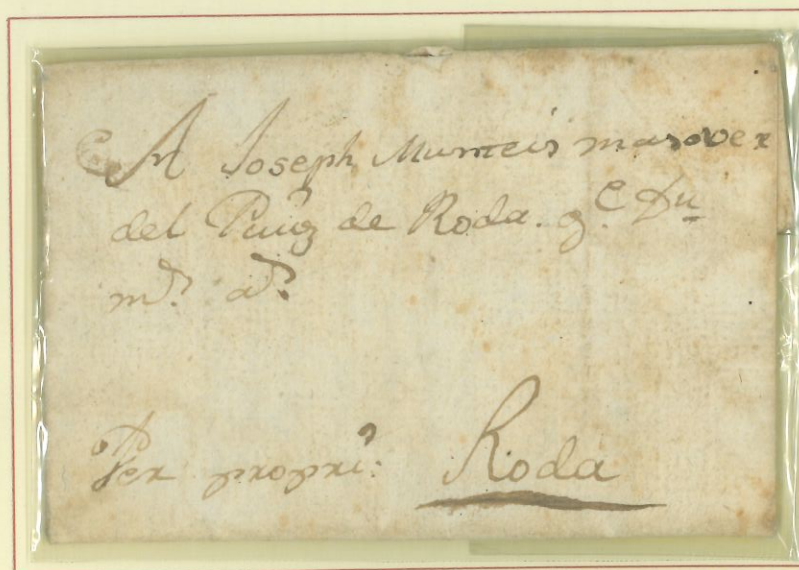 A Joseph masover
del Puig de Roda. g.e Du
m.s a.s
Per propri: Roda